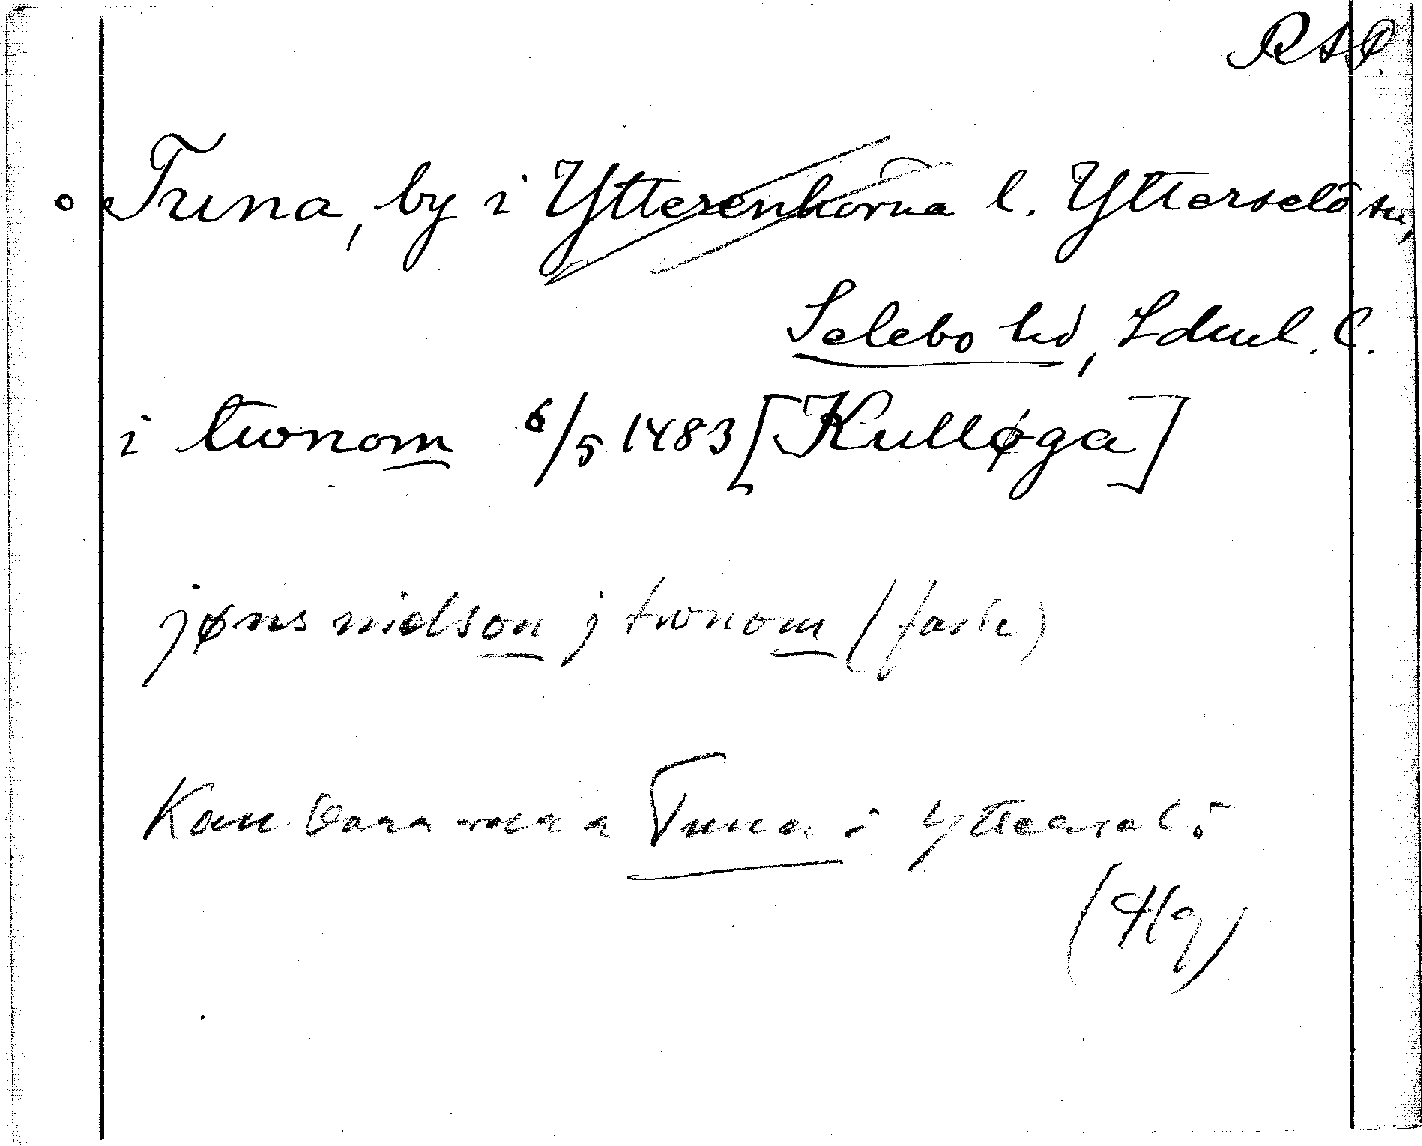 RAP.
Tuna, by i Ytterenhörna l. Ytterselö sn,
Selebo hd, Sdml. C.
i twnom 6/5 1483 [Kulløga]
jøns nielson j twnom (faste)
Kan vara Tuna i Ytterselö
(Hg)